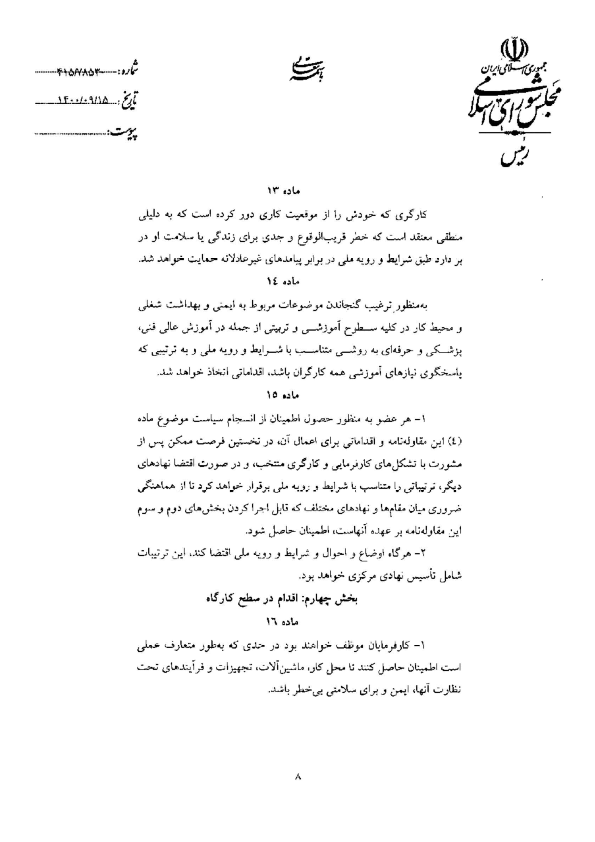 جمهوری اسلامی ایران
مجلس شورای اسلامی
رئیس
باسمه تعالی
شماره: ۴۱۵/۷۸۵۳۰
تاریخ: ۱۴۰۰/۰۹/۱۵
پیوست:
ماده ۱۳
کارگری که خودش را از موقعیت کاری دور کرده است که به دلیلی
منطقی معتقد است که خطر قریب‌الوقوع و جدی برای زندگی یا سلامت او در
بر دارد طبق شرایط و رویه ملی در برابر پیامدهای غیرعادلانه حمایت خواهد شد.
ماده ۱۴
به‌منظور ترغیب گنجاندن موضوعات مربوط به ایمنی و بهداشت شغلی
و محیط کار در کلیه سطوح آموزشی و تربیتی از جمله در آموزش عالی فنی،
پزشکی و حرفه‌ای به روشی متناسب با شرایط و رویه ملی و به ترتیبی که
پاسخگوی نیازهای آموزشی همه کارگران باشد، اقداماتی اتخاذ خواهد شد.
ماده ۱۵
۱- هر عضو به منظور حصول اطمینان از انسجام سیاست موضوع ماده
(٤) این مقاوله‌نامه و اقداماتی برای اعمال آن، در نخستین فرصت ممکن پس از
مشورت با تشکل‌های کارفرمایی و کارگری منتخب، و در صورت اقتضا نهادهای
دیگر، ترتیباتی را متناسب با شرایط و رویه ملی برقرار خواهد کرد تا از هماهنگی
ضروری میان مقام‌ها و نهادهای مختلف که قابل اجرا کردن بخش‌های دوم و سوم
این مقاوله‌نامه بر عهده آنهاست، اطمینان حاصل شود.
۲- هرگاه اوضاع و احوال و شرایط و رویه ملی اقتضا کند، این ترتیبات
شامل تأسیس نهادی مرکزی خواهد بود.
بخش چهارم: اقدام در سطح کارگاه
ماده ۱۶
۱- کارفرمایان موظف خواهند بود در حدی که به‌طور متعارف عملی
است اطمینان حاصل کنند تا محل کار، ماشین‌آلات، تجهیزات و فرآیندهای تحت
نظارت آنها، ایمن و برای سلامتی بی‌خطر باشد.
۸